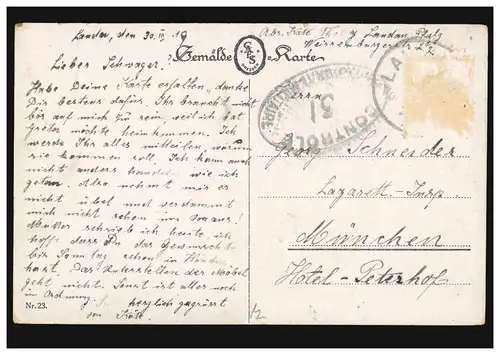 Landau, den 30. IV. 19
Gemälde Karte
Abs. Käte Landau Pfalz
Weissenburgerstr.
Lieber Schwager!
Habe Deine Karte erhalten, danke
Dir bestens dafür. Ihr braucht nicht
bös auf mich zu sein, weil ich bat
möchte heimkommen. Ich
werde Ihr alles mitteilen, warum
sie kommen soll. Ich kann auch
nicht anders handeln wie ich
getan. Also nehmt mir es
nicht übel und verdammt
mich nicht schon im voraus!
Mutter schrieb ich heute, ich
hoffe dass Du das Gewünschte
bis Sonntag schon in Händen
hast. Das Unterstellen der Möbel
geht nicht. Sonst ist alles noch
in Ordnung. herzlich gegrüsst
von Käte
Nr. 23.
CONTRÔLE
31
LA
Herrn
Georg Schneider
Lazarett-Insp.
München
Hotel-Peterhof